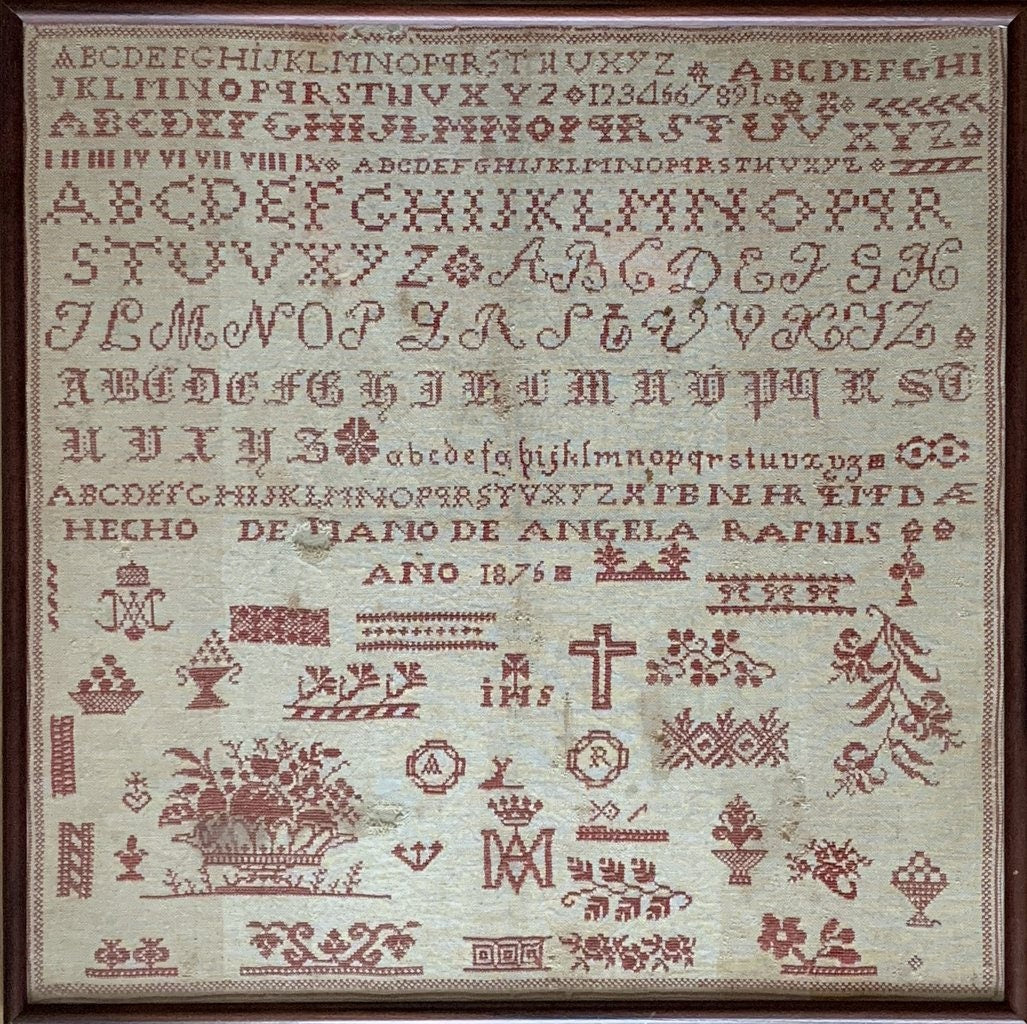 ABCDEFGHIJKLMNOPQRSTUVXYZ ABCDEFGHI
JKLMNOPQRSTUVXYZ 12345678910
ABCDEFGHIJLMNOPQRSTUV XYZ
I II III IV VI VII VIII IX ABCDEFGHIJKLMNOPQRSTUVXYZ
ABCDEFGHIJKLMNOPQR
STUVXYZ ABCDEFGH
JLMNOPQRSTUVXYZ
ABCDEFGHIKLMNOPQRST
UVXYZ abcdefghijklmnopqrstuvxyz
ABCDEFGHIJKLMNOPQRSTVXYZ
HECHO DE MANO DE ANGELA RAFULS
AÑO 1876
IHS
A R